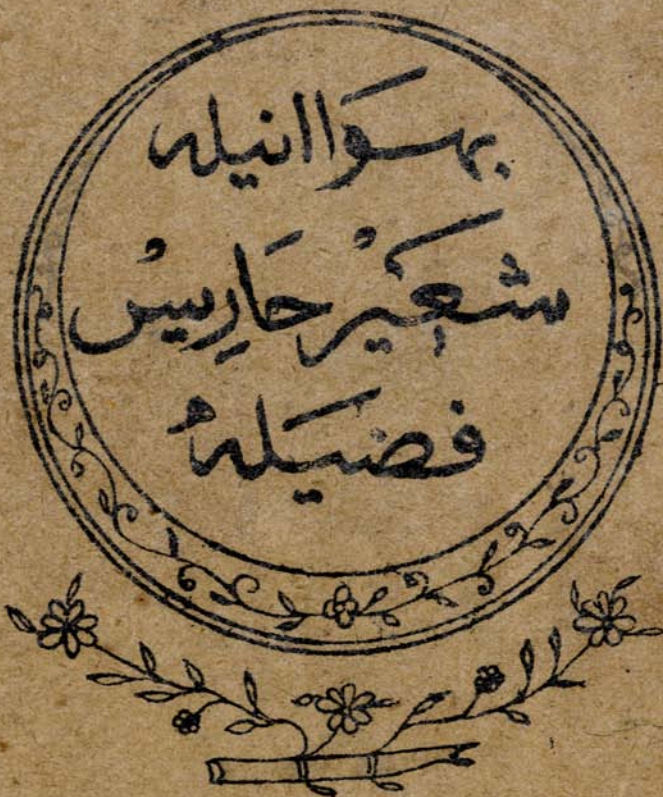 بهسوَا انيله
شعَيْر حَارِيسْ
فضيَلهْ